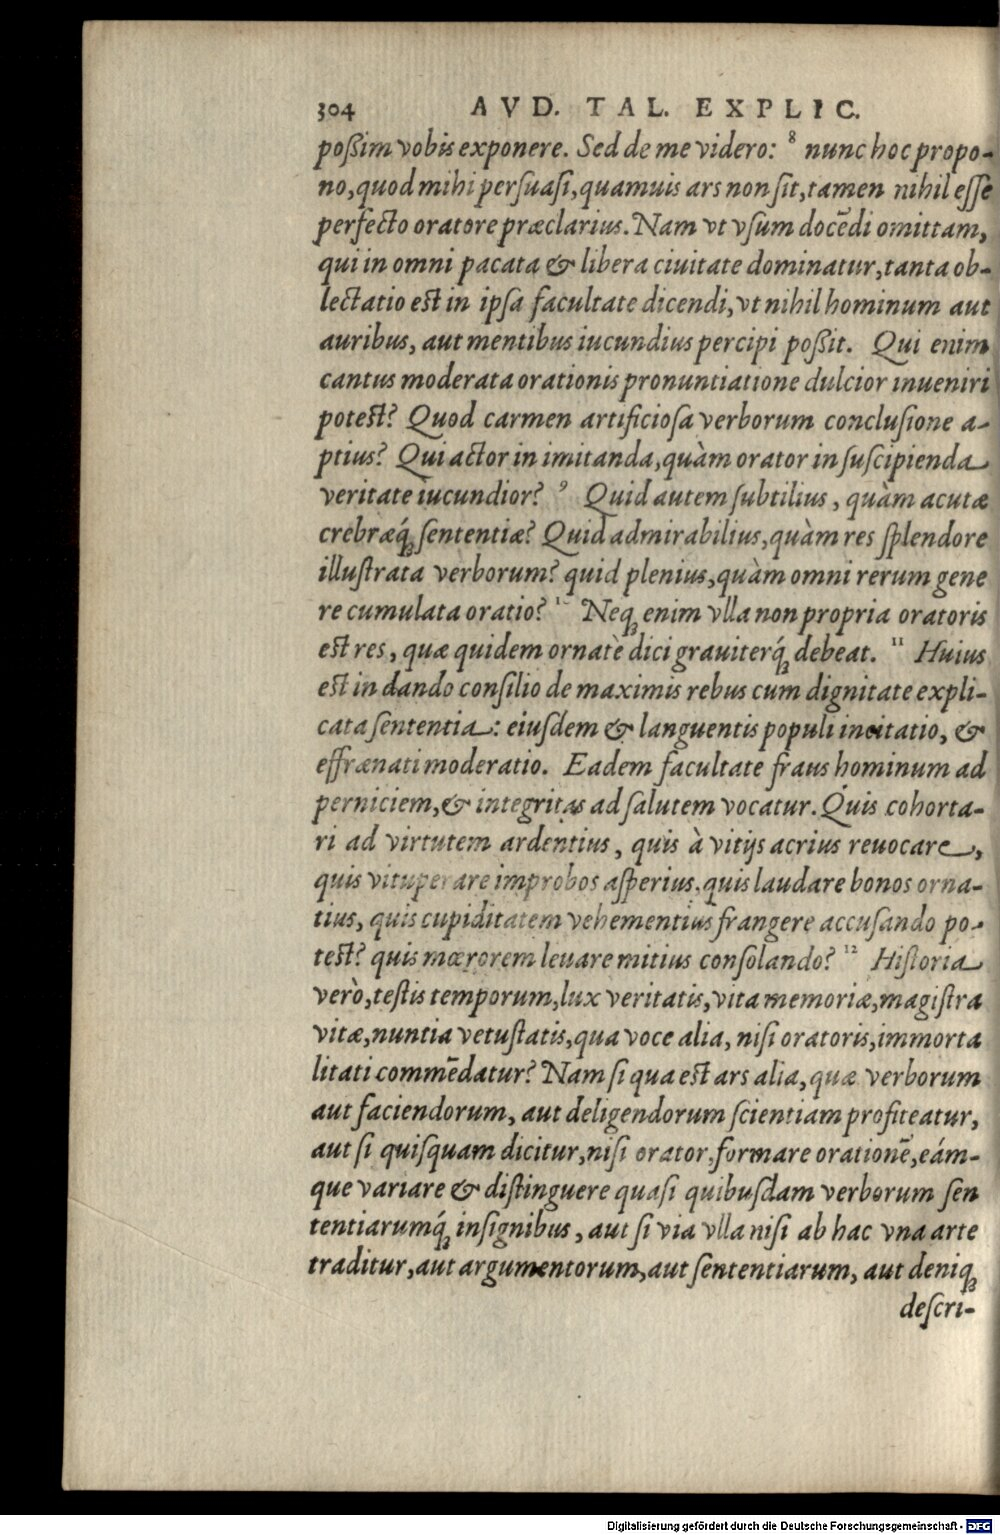 304 AVD. TAL. EXPLIC.
poßim vobis exponere. Sed de me videro: ⁸ nunc hoc propo-
no, quod mihi persuasi, quamuis ars non sit, tamen nihil esse
perfecto oratore præclarius. Nam vt vsum docēdi omittam,
qui in omni pacata & libera ciuitate dominatur, tanta ob-
lectatio est in ipsa facultate dicendi, vt nihil hominum aut
auribus, aut mentibus iucundius percipi poßit. Qui enim
cantus moderata orationis pronuntiatione dulcior inueniri
potest? Quod carmen artificiosa verborum conclusione a-
ptius? Qui actor in imitanda, quàm orator in suscipienda
veritate iucundior? ⁹ Quid autem subtilius, quàm acutæ
crebræq́; sententiæ? Quid admirabilius, quàm res splendore
illustrata verborum? quid plenius, quàm omni rerum gene
re cumulata oratio? ¹⁰ Neq; enim vlla non propria oratoris
est res, quæ quidem ornatè dici grauiterq́; debeat. ¹¹ Huius
est in dando consilio de maximis rebus cum dignitate expli-
cata sententia: eiusdem & languentis populi incitatio, &
effrænati moderatio. Eadem facultate fraus hominum ad
perniciem, & integritas ad salutem vocatur. Quis cohorta-
ri ad virtutem ardentius, quis à vitijs acrius reuocare,
quis vituperare improbos asperius, quis laudare bonos orna-
tius, quis cupiditatem vehementius frangere accusando po-
test? quis mœrorem leuare mitius consolando? ¹² Historia
verò, testis temporum, lux veritatis, vita memoriæ, magistra
vitæ, nuntia vetustatis, qua voce alia, nisi oratoris, immorta
litati commēdatur? Nam si qua est ars alia, quæ verborum
aut faciendorum, aut deligendorum scientiam profiteatur,
aut si quisquam dicitur, nisi orator, formare orationē, eám-
que variare & distinguere quasi quibusdam verborum sen
tentiarumq́; insignibus, aut si via vlla nisi ab hac vna arte
traditur, aut argumentorum, aut sententiarum, aut deniq;
descri-
Digitalisierung gefördert durch die Deutsche Forschungsgemeinschaft - DFG